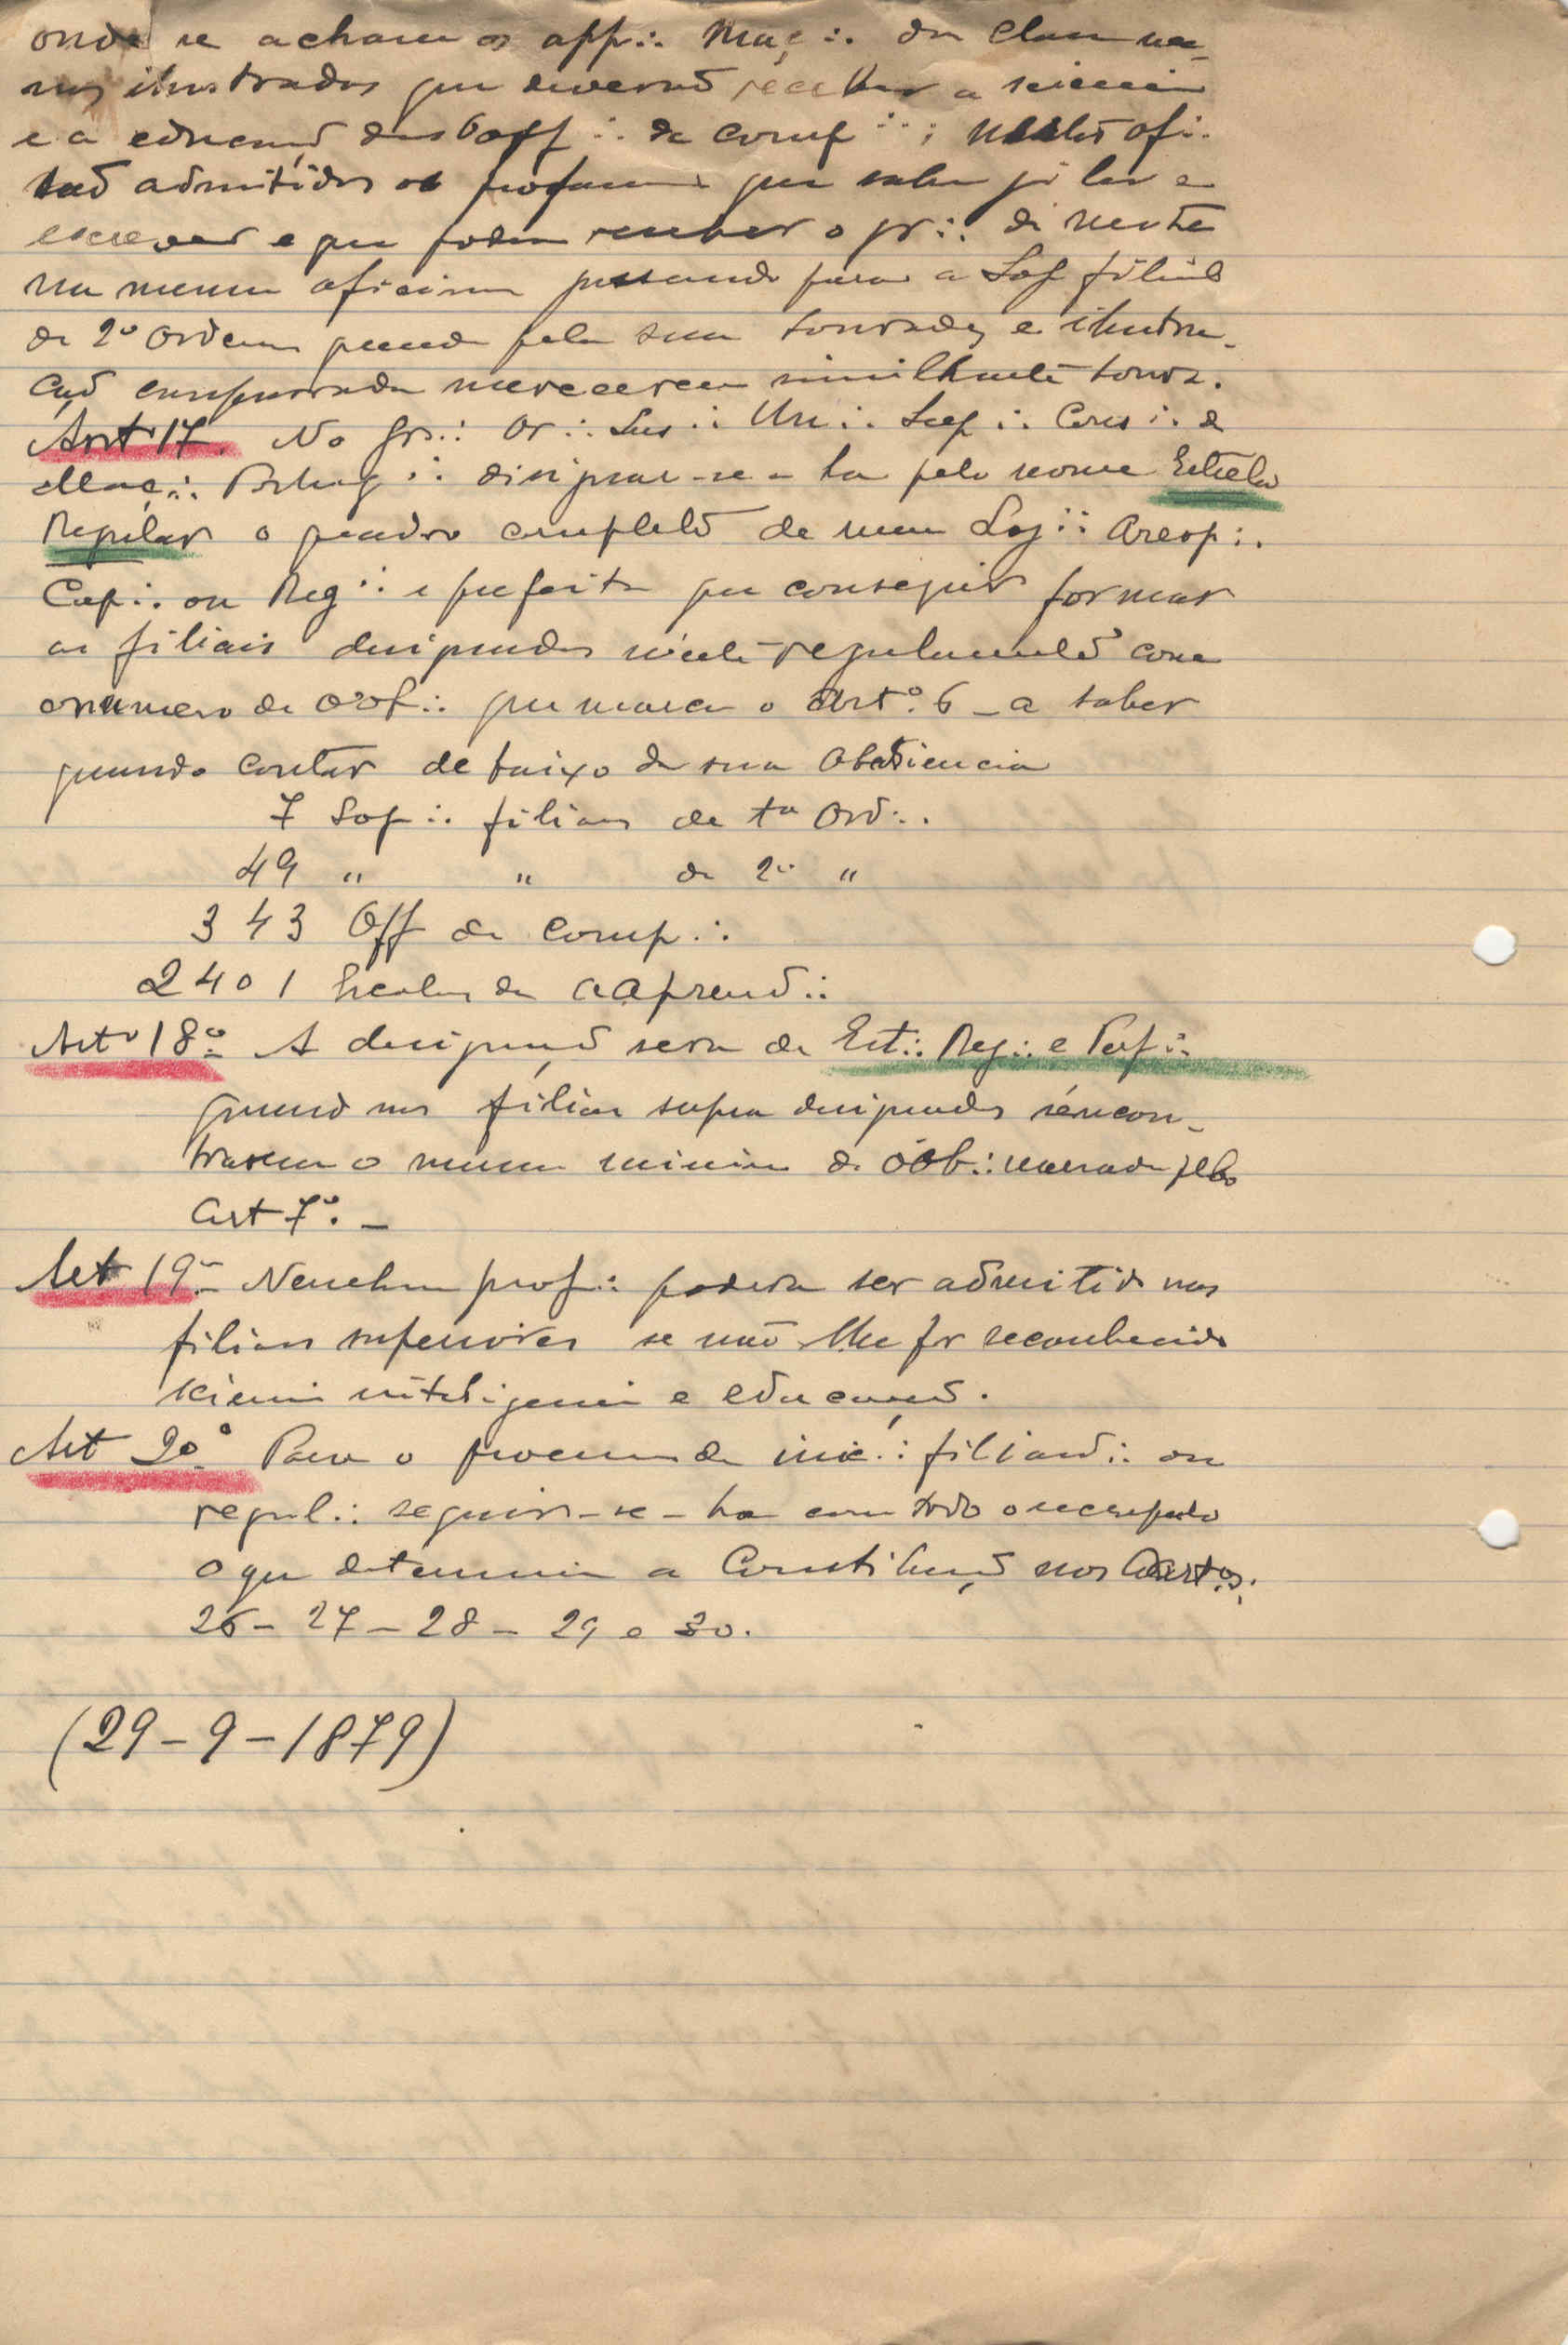 onde se acham os app∴ Maç∴ da classe me-
nos ilustrados que deverão receber a sciencia
e a educação das Ooff∴ de comp∴; nestes ofi.
são admitidos os profanos que sabem já ler e
escrever e que podem receber o gr∴ de mestre
na mesma oficina passando para a Loj filial
de 2ª Ordem quando pela sua honradez e ilustra-
ção comprovada merecerem similhante honra.
Art 17. No Gr∴ Or∴ Lus∴ Un∴ Sup∴ Cons∴ da
Maç∴ Portug∴ designar-se-ha pelo nome Estrela
Regular o quadro completo de uma Loj∴ Areop∴
Cap∴ ou Reg∴ e perfeita que conseguir formar
as filiais designadas neste regulamento com
o numero de oob∴ que marca o Artº. 6 - a saber
quando contar debaixo da sua Obediencia
7 Loj∴ filiaes de 1ª Ord∴
49 " " de 2ª "
343 Off de comp∴
2401 Escolas de aaprend∴
Artº 18º A designação sera de Est∴ Reg∴ e Perf∴
quando nas filiaes supra designadas se encon-
trarem o numero minimo de oob∴ marcado pelo
Art 7º. -
Art 19º Nenhum prof∴ podera ser admitido nas
filiaes superiores se não lhe for reconhecida
sciencia inteligencia e educação.
Art 20º Para o processo de inic∴ filiand∴ ou
regul∴ seguir-se-ha com todo o escrupulo
o que determina a Constituição nos Aartos.
26 - 27 - 28 - 29 e 30.
(29-9-1879)